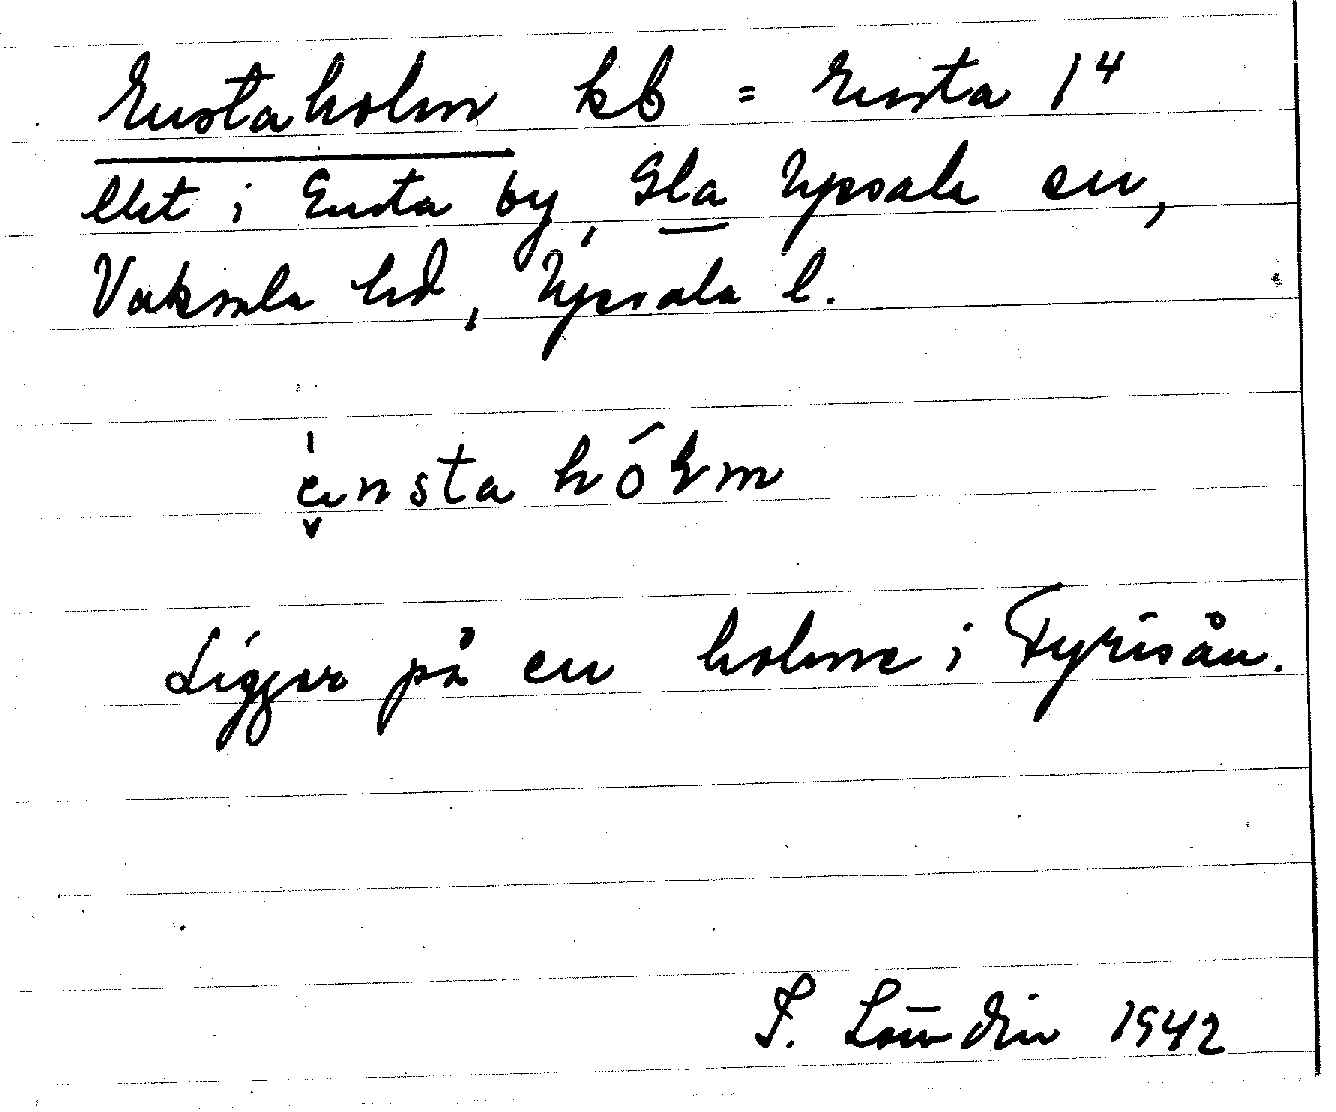 Enstaholm kb = Ensta 1⁴
Ekt i Ensta by, Gla Upsala sn,
Vaksala hd, Upsala l.
ensta hólm
Ligger på en holme i Fyrisån.
S. Landin 1942